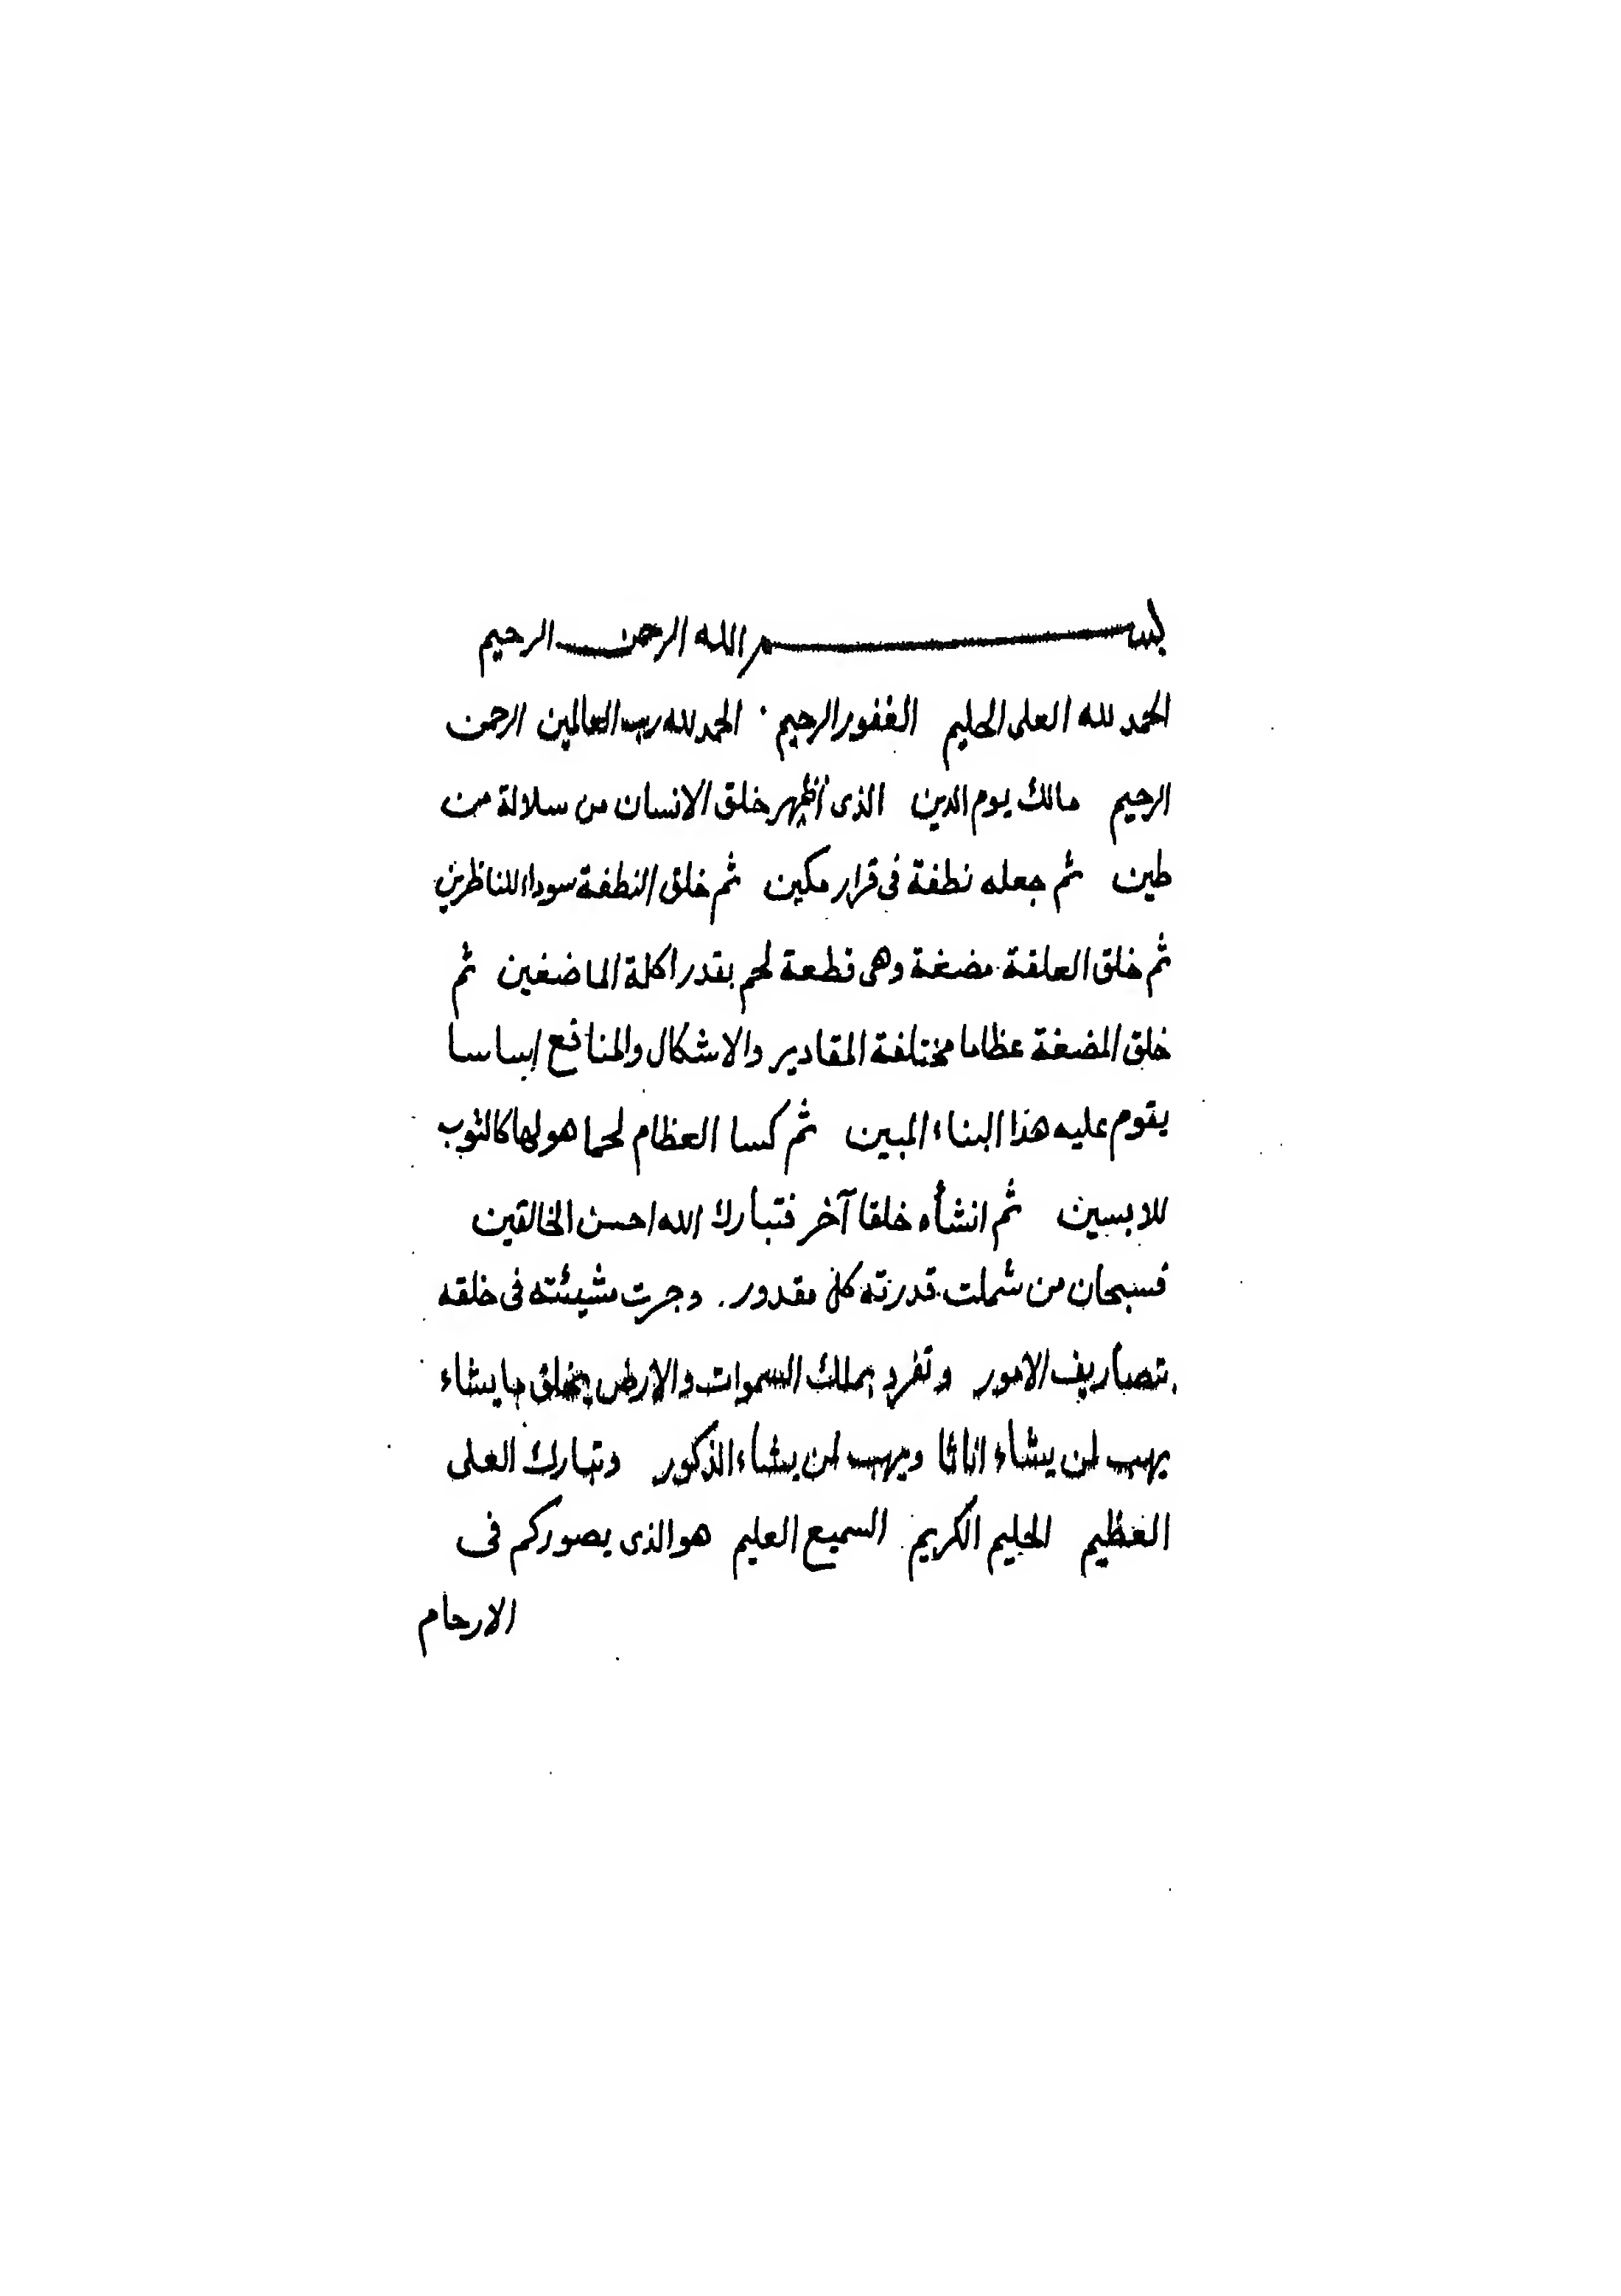 بسم الله الرحمن الرحيم
الحمد لله العلى الحليم الغفور الرحيم . الحمد لله رب العالمين الرحمن
الرحيم مالك يوم الدين الذى أظهر خلق الانسان من سلالة من
طين ثم جعله نطفة فى قرار مكين ثم خلق النطفة سوداء للناظرين
ثم خلق العلقة مضغة وهى قطعة لحم بقدر اكلة الماضغين ثم
خلق المضغة عظاما مختلفة المقادير والاشكال والمنافع اساسا
يقوم عليه هذا البناء المبين ثم كسا العظام لحما هو لها كالثوب
للابسين ثم انشأه خلقا آخر فتبارك الله احسن الخالقين
فسبحان من شملت قدرته كل مقدور . وجرت مشيئته فى خلقه
بتصاريف الامور وتفرد بملك السموات والارض يخلق ما يشاء
يهب لمن يشاء اناثا ويهب لمن يشاء الذكور وتبارك العلى
العظيم الحليم الكريم السميع العليم هو الذى يصوركم فى
الارحام